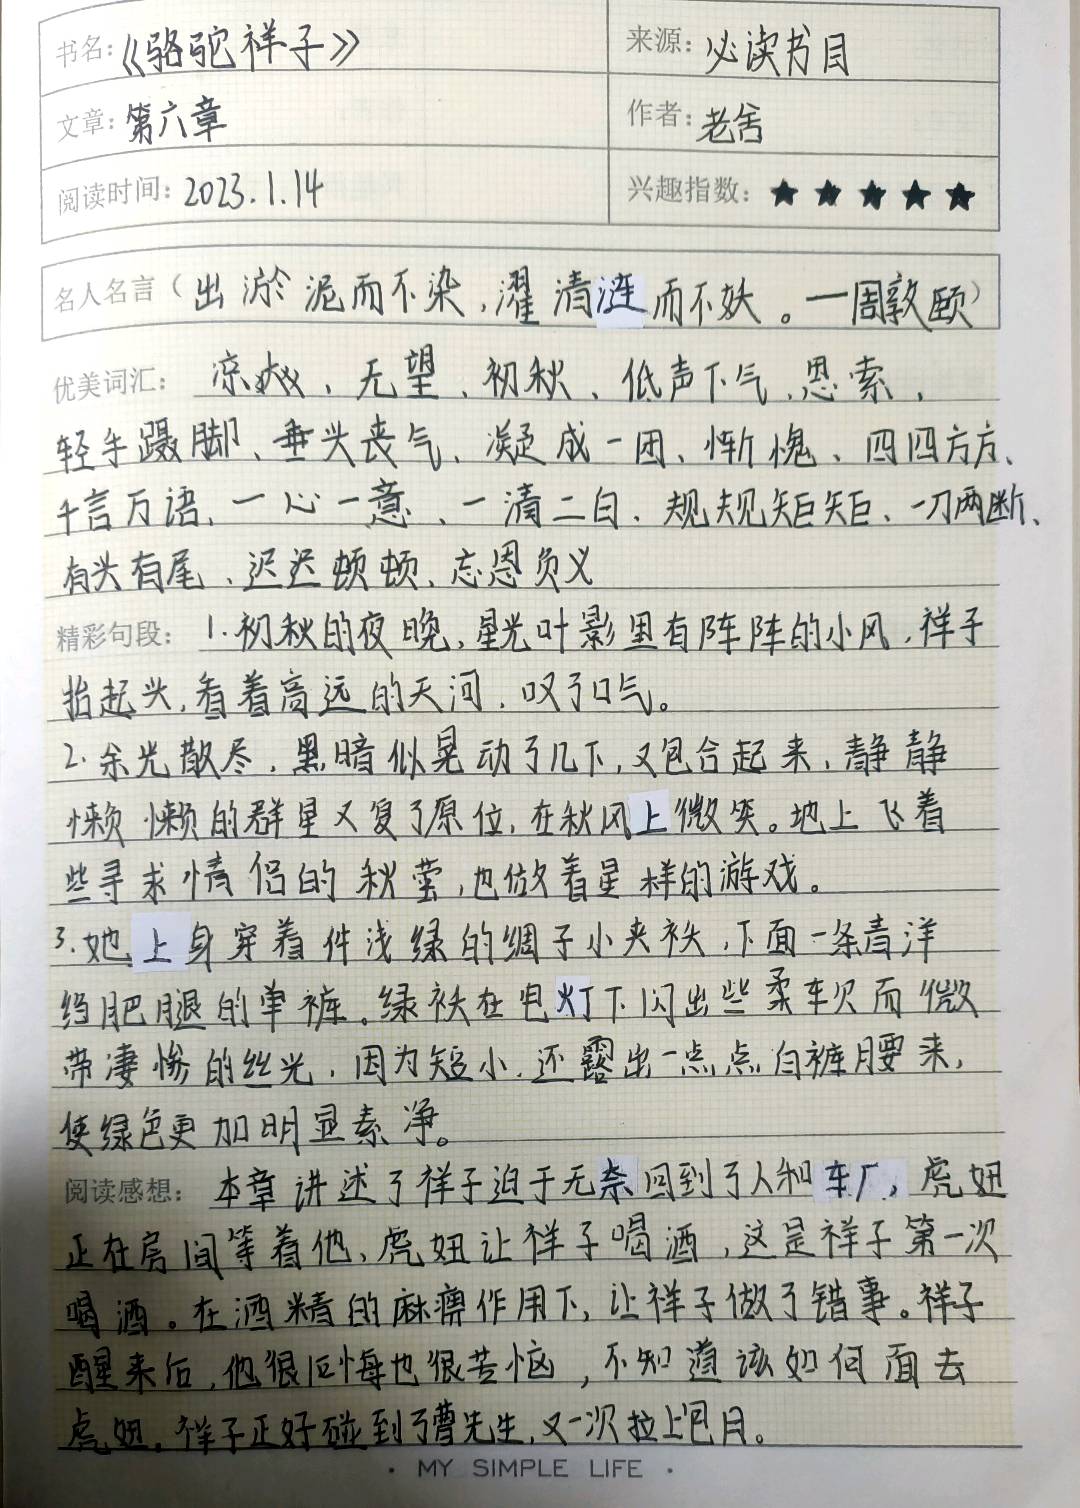 书名:《骆驼祥子》 来源:必读书目
文章:第六章 作者:老舍
阅读时间:2023.1.14 兴趣指数:★★★★★
名人名言(出淤泥而不染,濯清涟而不妖。一周敦颐)
优美词汇: 凉爽、无望、初秋、低声下气、思索、
轻手蹑脚、垂头丧气、凝成一团、惭愧、四四方方、
千言万语、一心一意、一清二白、规规矩矩、一刀两断、
有头有尾、迟迟顿顿、忘恩负义
精彩句段: 1.初秋的夜晚,星光叶影里有阵阵的小风,祥子
抬起头,看着高远的天河,叹了口气。
2.余光散尽,黑暗似晃动了几下,又包合起来,静静
懒懒的群星又复了原位,在秋风上微笑。地上飞着
些寻求情侣的秋萤,也做着星样的游戏。
3.她上身穿着件浅绿的绸子小夹袄,下面一条青洋
绉肥腿的单裤。绿袄在电灯下闪出些柔软而微
带凄惨的丝光,因为短小,还露出一点点白裤腰来,
使绿色更加明显素净。
阅读感想: 本章讲述了祥子迫于无奈回到了人和车厂,虎妞
正在房间等着他,虎妞让祥子喝酒,这是祥子第一次
喝酒。在酒精的麻痹作用下,让祥子做了错事。祥子
醒来后,他很后悔也很苦恼,不知道该如何面去
虎妞。祥子正好碰到了曹先生,又一次拉上包月。
· MY SIMPLE LIFE ·